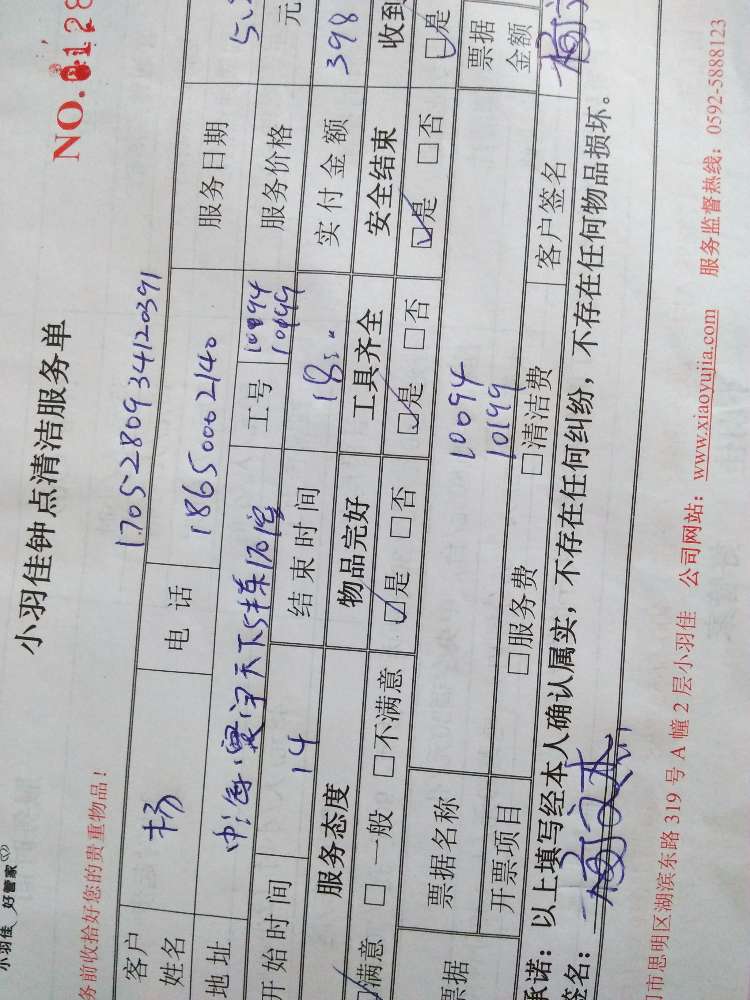 小羽佳 好管家
小羽佳钟点清洁服务单
NO. 0128
务前收拾好您的贵重物品！
1705280934120391
客户姓名 杨 电话 18650002140 服务日期 5.
地址 中海寰宇天下 工号 10094 10199 服务价格 元
开始时间 14 结束时间 18: 实付金额 398
服务态度 物品完好 工具齐全 安全结束 收到
☑满意 □一般 □不满意 ☑是 □否 ☑是 □否 ☑是 □否 ☑是
票据 票据名称 10094 10199 票据金额
开票项目 □服务费 □清洁费 客户签名
承诺：以上填写经本人确认属实，不存在任何纠纷，不存在任何物品损坏。
签名：
市思明区湖滨东路 319 号 A 幢 2 层小羽佳 公司网站：www.xiaoyujia.com 服务监督热线：0592-5888123